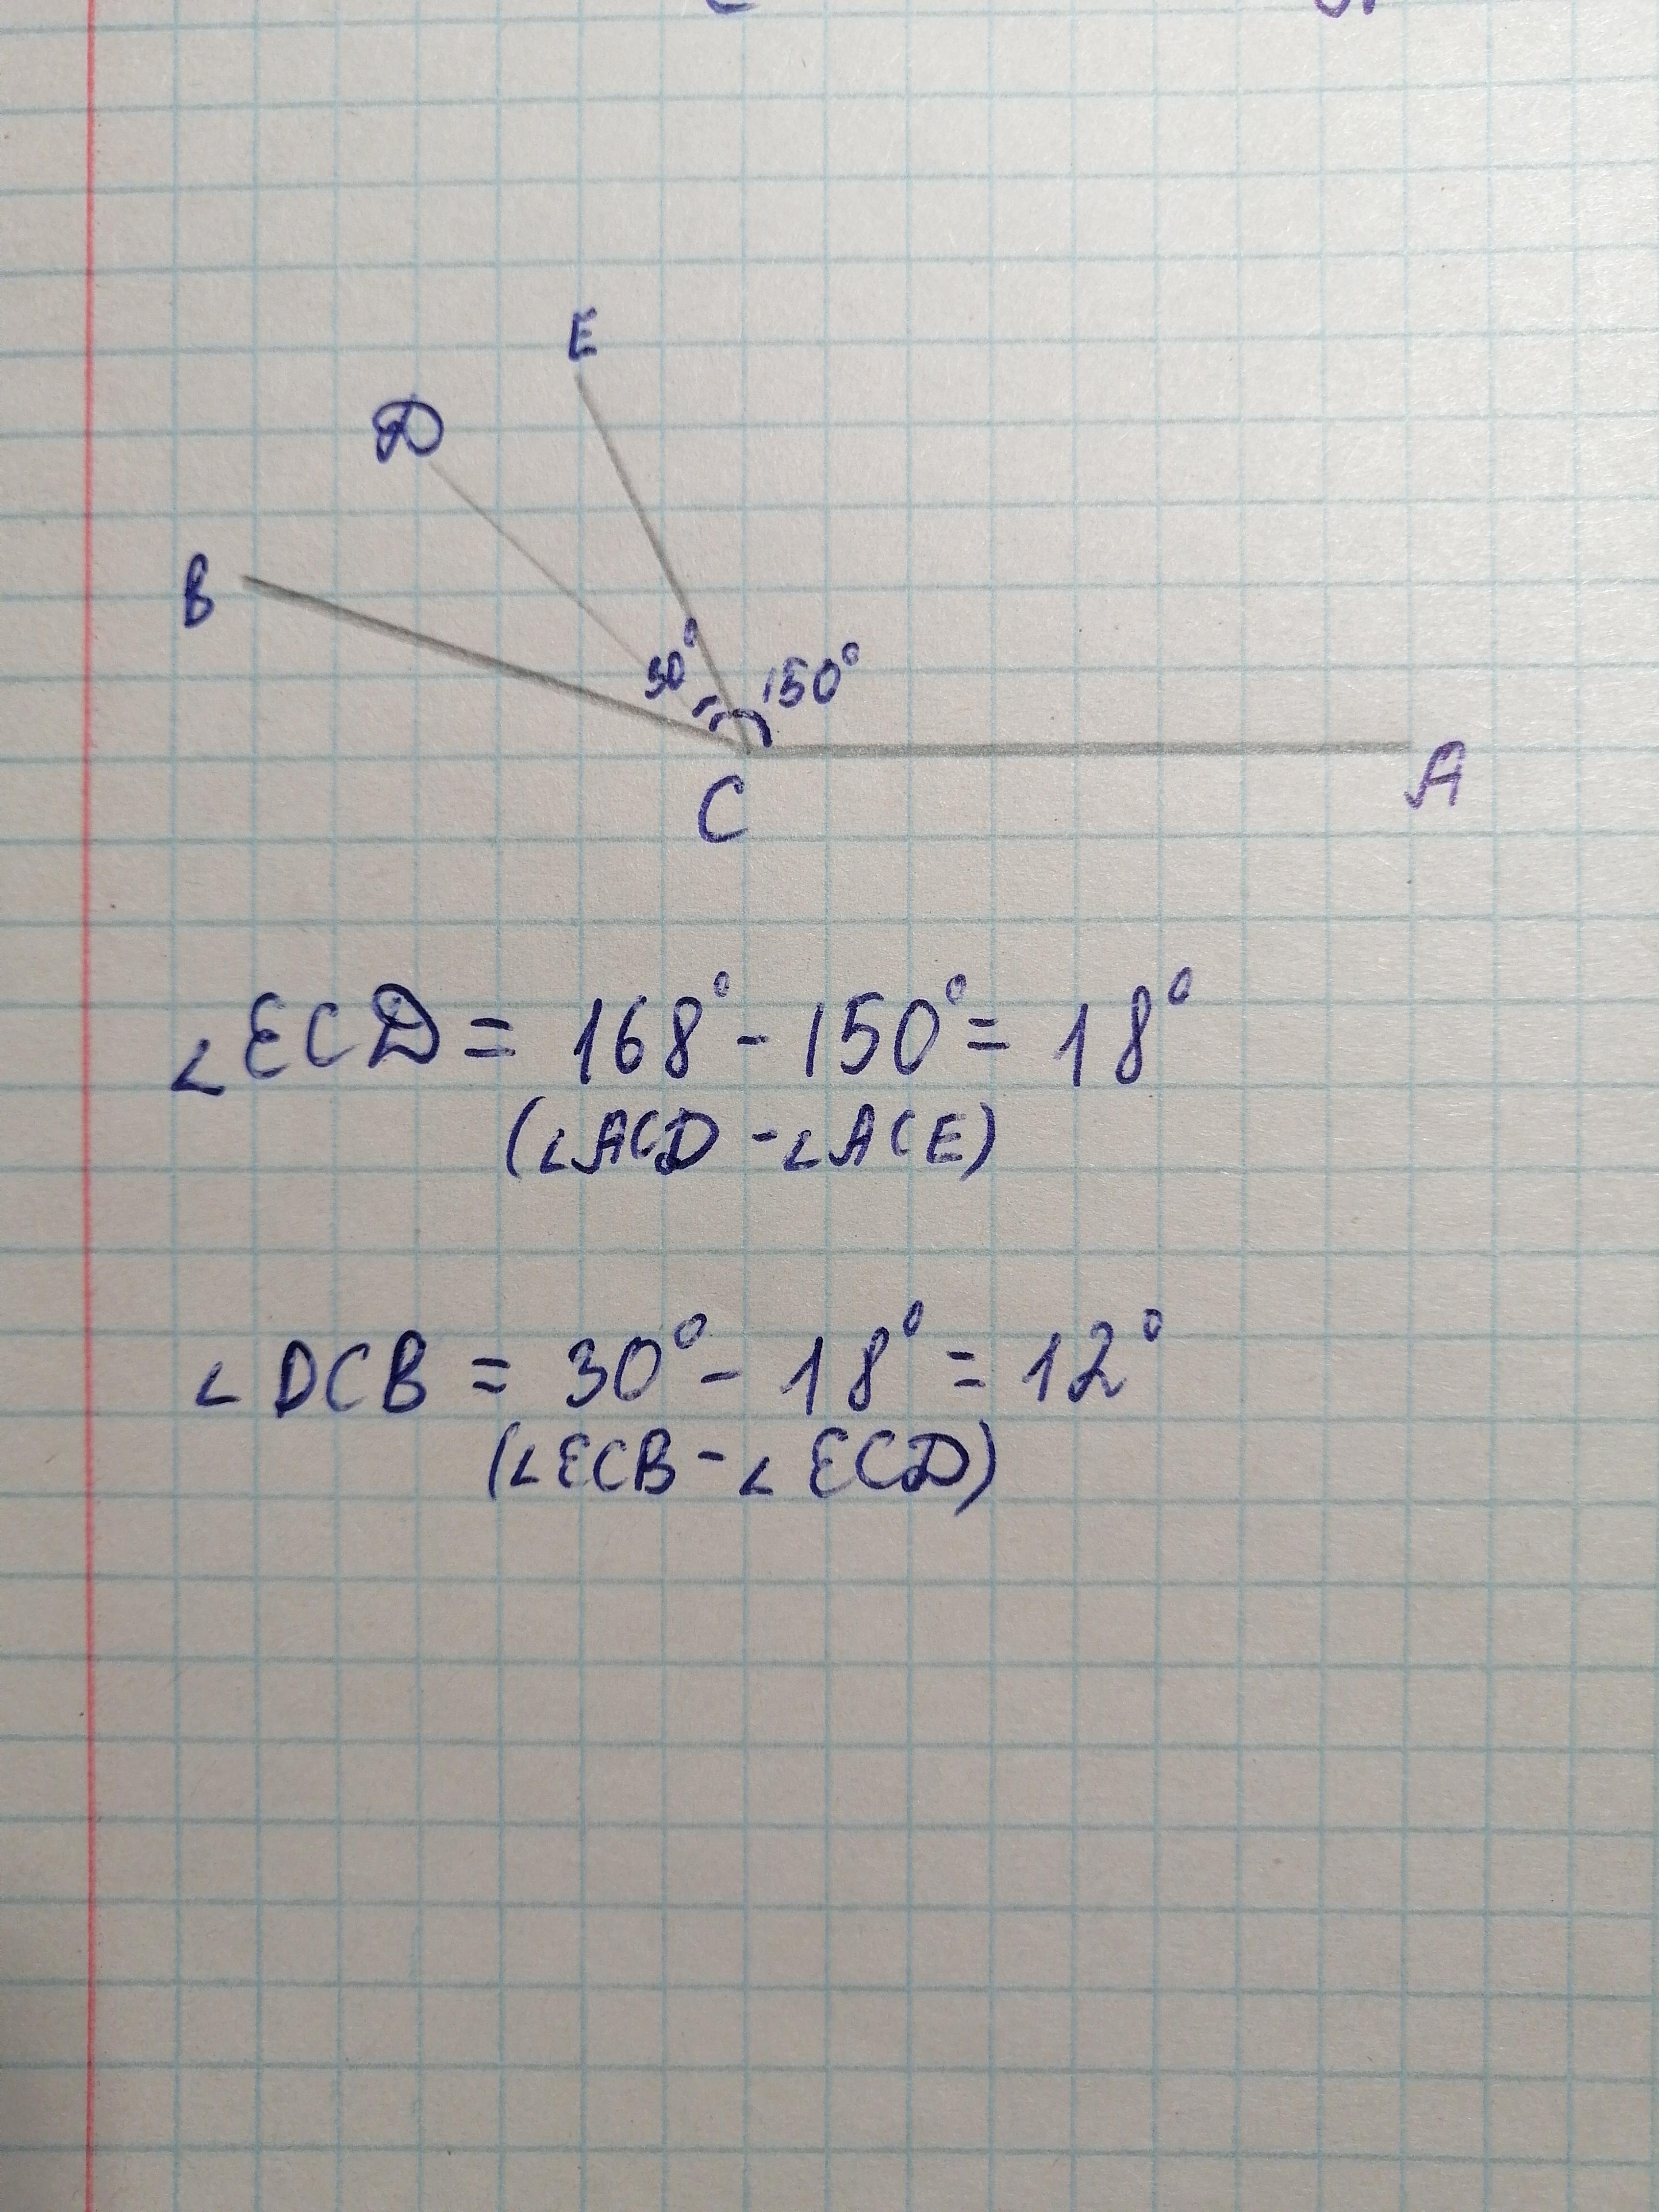 E
D
B
30° 150°
C
A
∠ECD = 168° - 150° = 18°
(∠ACD - ∠ACE)
∠DCB = 30° - 18° = 12°
(∠ECB - ∠ECD)